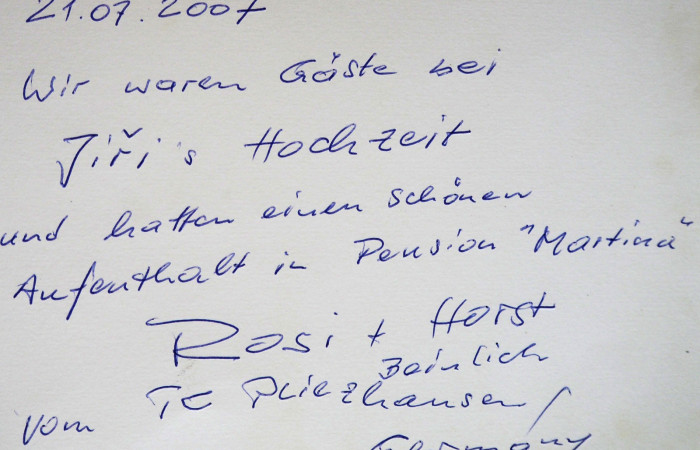 21.07.2007
Wir waren Gäste bei
Jiři's Hochzeit
und hatten einen schönen
Aufenthalt in Pension "Martina"
Rosi + Horst
Beinlich
vom TC Pliezhausen /
Germany